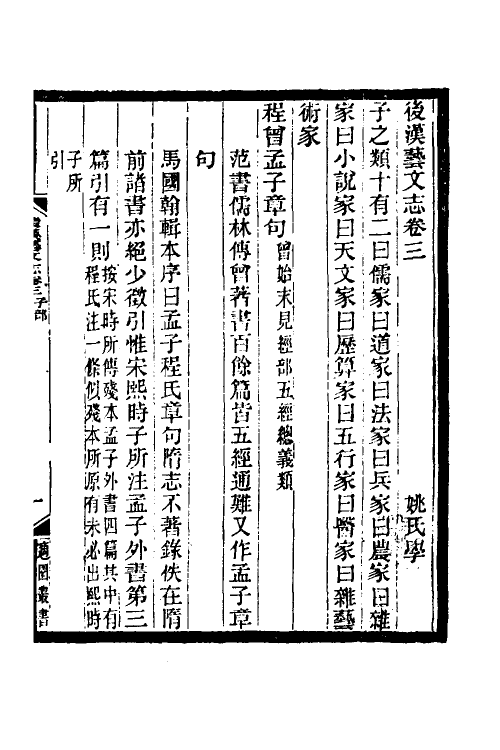 後漢藝文志卷三
姚氏學
子之類十有二曰儒家曰道家曰法家曰兵家曰農家曰雜
家曰小說家曰天文家曰歷算家曰五行家曰醫家曰雜藝
術家
程曾孟子章句曾始末見經部五經總義類
范書儒林傳曾著書百餘篇皆五經通難又作孟子章
句
馬國翰輯本序曰孟子程氏章句隋志不著錄佚在隋
前諸書亦絕少徵引惟宋熙時子所注孟子外書第三
篇引有一則按宋時所傳殘本孟子外書四篇其中有
程氏注一條似殘本所原有未必出熙時
子所
引
後漢藝文志卷三子部
一
適園叢書